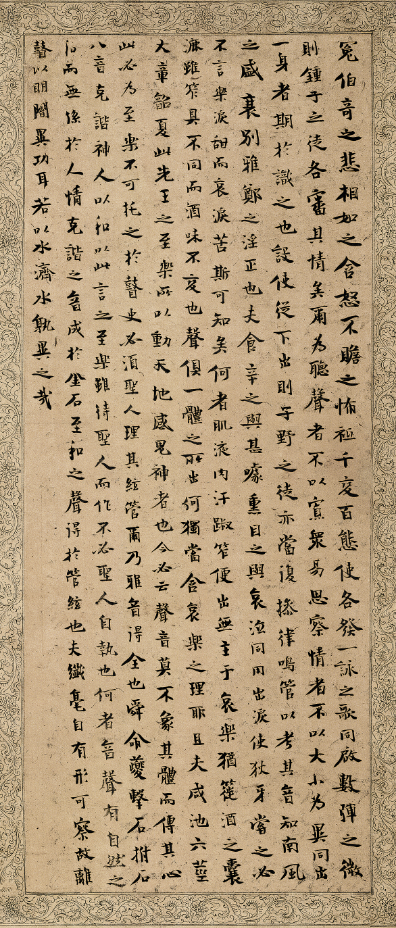 冤伯奇之悲相如之含怒不瞻之怖祗千變百態使各發一詠之歌同啟數彈之微
則鍾子之徒各審其情矣爾為聽聲者不以寡衆易思察情者不以大小為異同出
一身者期於識之也設使從下出則子野之徒亦當復操律鳴管以考其音知南風
之盛衰別雅鄭之淫正也夫食辛之與甚噱熏目之與哀泣同用出淚使狄牙嘗之必
不言樂淚甜而哀淚苦斯可知矣何者肌液肉汗踧笮便出無主于哀樂猶簁酒之囊
漉雖笮具不同而酒味不變也聲俱一體之所出何獨當含哀樂之理耶且夫咸池六莖
大章韶夏此先王之至樂所以動天地感鬼神者也今必云聲音莫不象其體而傳其心
此必為至樂不可託之於瞽史必須聖人理其絃管爾乃雅音得全也舜命夔擊石拊石
八音克諧神人以和以此言之至樂雖待聖人而作不必聖人自執也何者音聲有自然之
和而無係於人情克諧之音成於金石至和之聲得於管絃也夫纖毫自有形可察故離
瞽以明闇異功耳若以水濟水孰異之哉